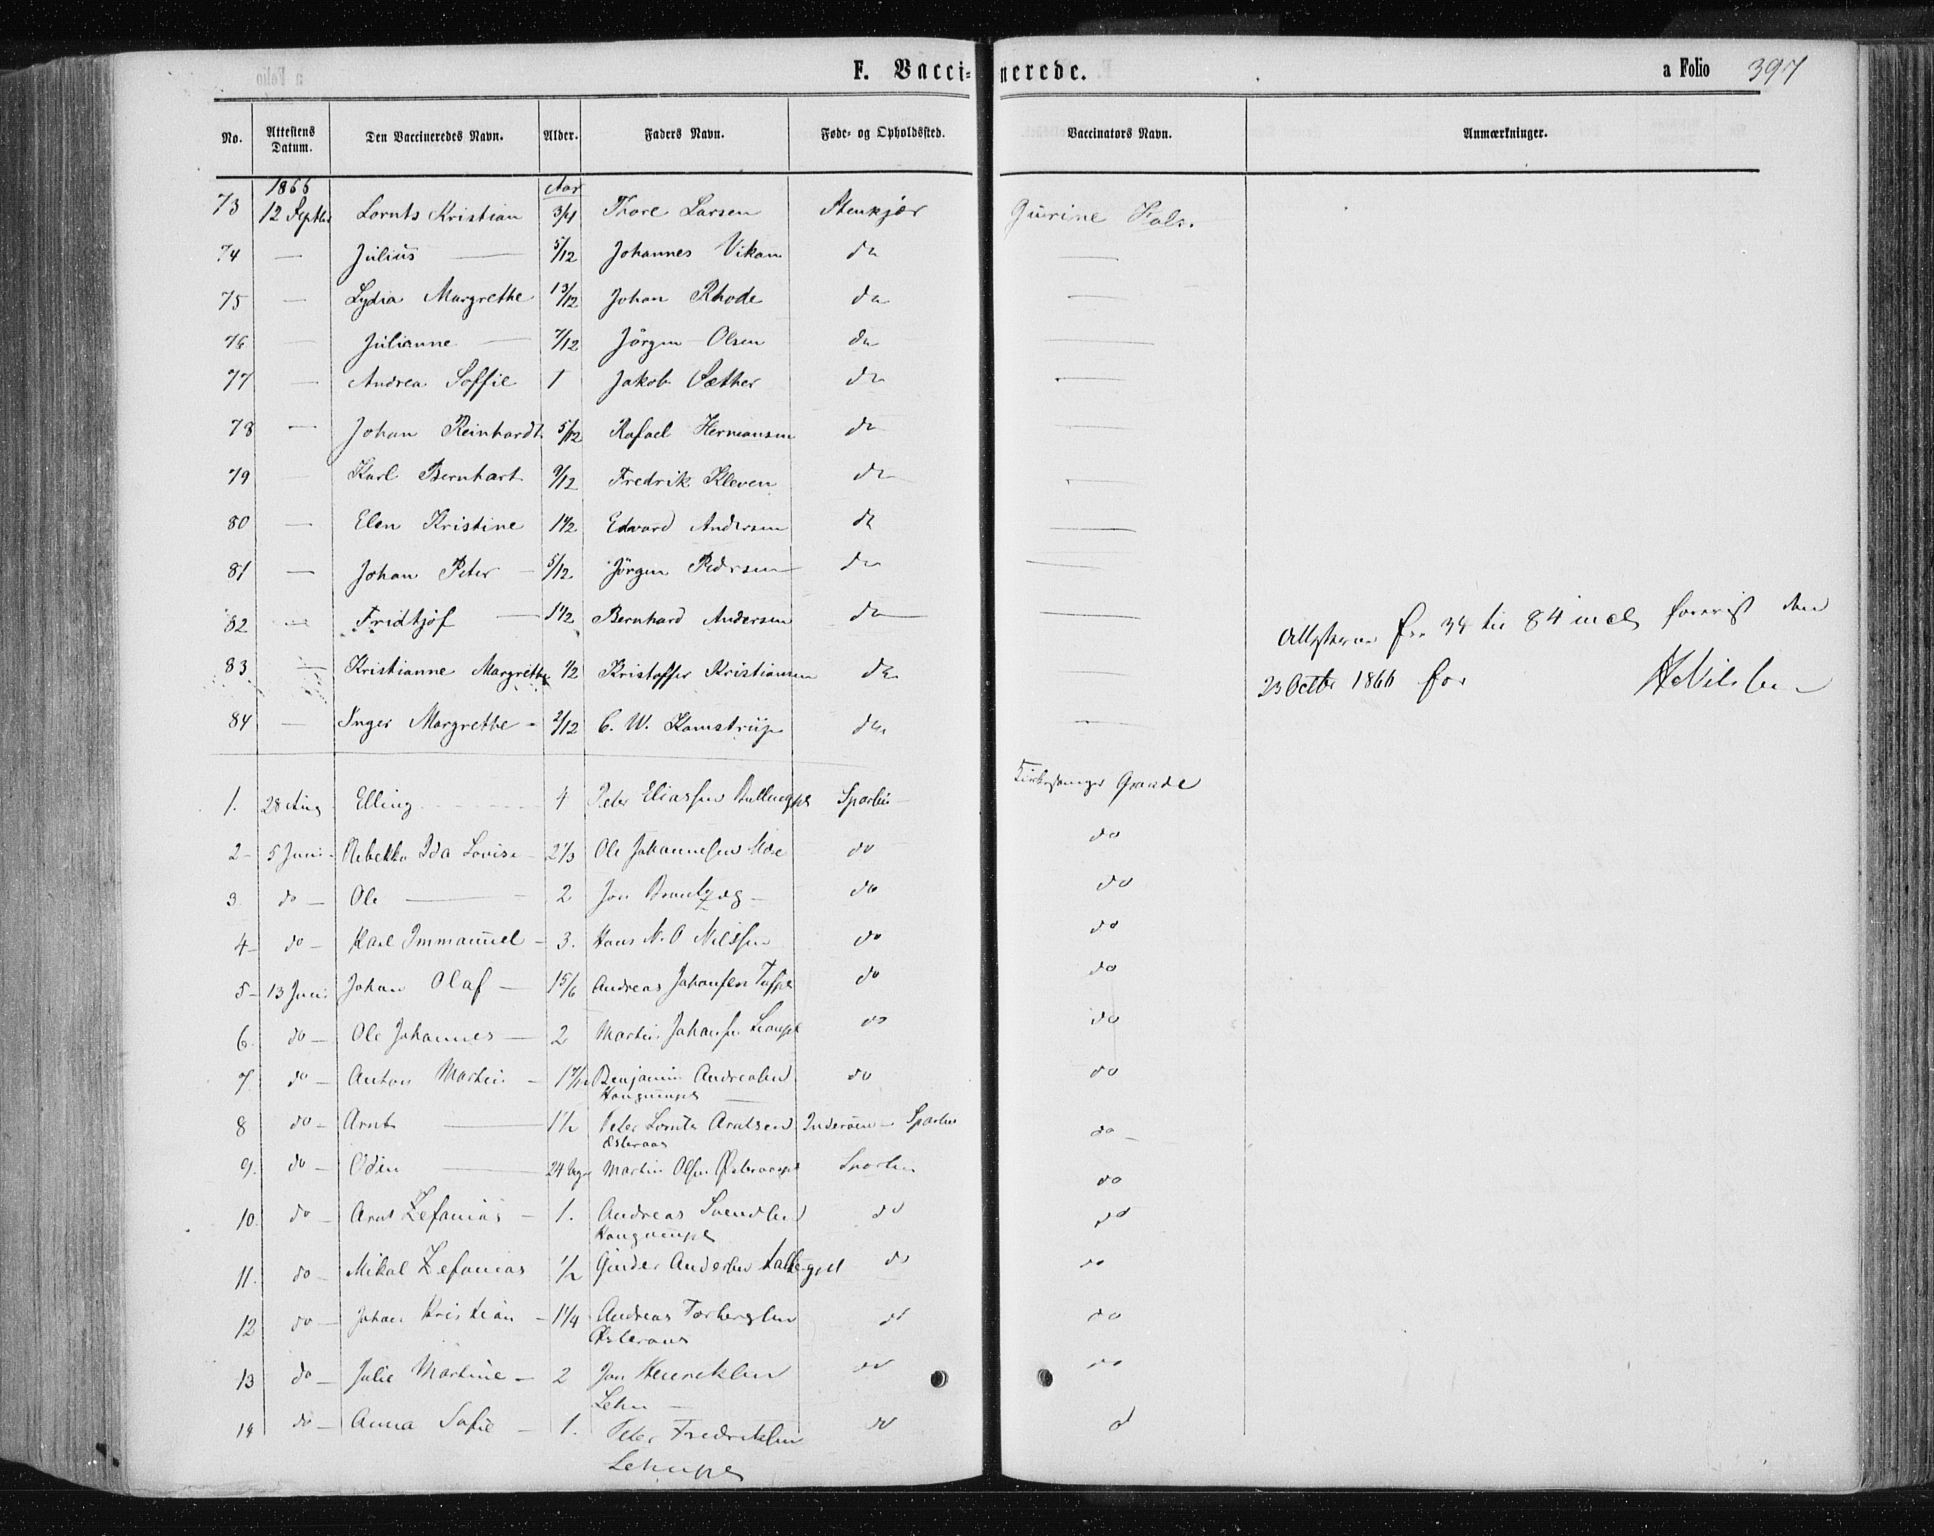 F. Vaccinerede. a Folio 397
No. Attestens Datum. Den Vaccineredes Navn. Alder. Faders Navn. Føde- og Opholdssted. Vaccinators Navn. Anmærkninger.
1866 Aar
73 12 Septbr Lornts Kristian 3/4 Thore Larsen Stenkjær Gurine Fals.
74 — Julius — 5/12 Johannes Vikan do —
75 — Lydia Margrethe 13/12 Johan Rhode do —
76 — Julianne — 7/12 Jörgen Olsen do —
77 — Andrea Soffie 1 Jakob Sæther do —
78 — Johan Reinhardt 5/12 Rafael Hermansen do —
79 — Karl Bernhart 9/12 Fredrik Kleven do —
80 — Elen Kristine 1 1/2 Edward Andersen do —
81 — Johan Peter — 5/12 Jörgen Pedersen do —
82 — Fridtjof — 1 1/2 Bernhard Andersen do — fra 34 til 84 incl. forevist den
83 — Kristianne Margrethe 1/2 Kristoffer Kristiansen do — 23 Octbr 1866 for
84 — Inger Margrethe - 2/12 C. W. Kamstrup do —
1. 28 Aug Elling 4 Peter Eliassen Sparbu Kirkesanger Grande
2 - 5 Juni - Rebekka Ida Lovise - 2 1/3 Ole Johannesen Moe do do
3. do - Ole — 2 Jon do do
4 - do - Karl Immanuel - 3. Hans N. O Nilssen do do
5 - 13 Juni Johan Olaf — 1 5/6 Andreas Johansen do do
6. do - Ole Johannes — 2 Martin Johansen do do
7. do - Anton Martin - Benjamin Andreasen do do
8 do - Arnt — 1 1/2 Peter Lornts Arntsen Inderøen - Sparbu do -
Østeraas
9. do - Odin — 24 Uger Martin Olsen Sparbu do
10. do - Arnt Zefanias - 1. Andreas Svendsen do do
11. do - Mikal Zefanias 1/2 Andersen do do
12 do - Johan Kristian - 1 1/4 Andreas Torbergsen do do
Østeraas
13 do - Julie Martine - 2 Jon Henriksen do do
14 do - Anna Sofie - 1. Peter Fredriksen do d